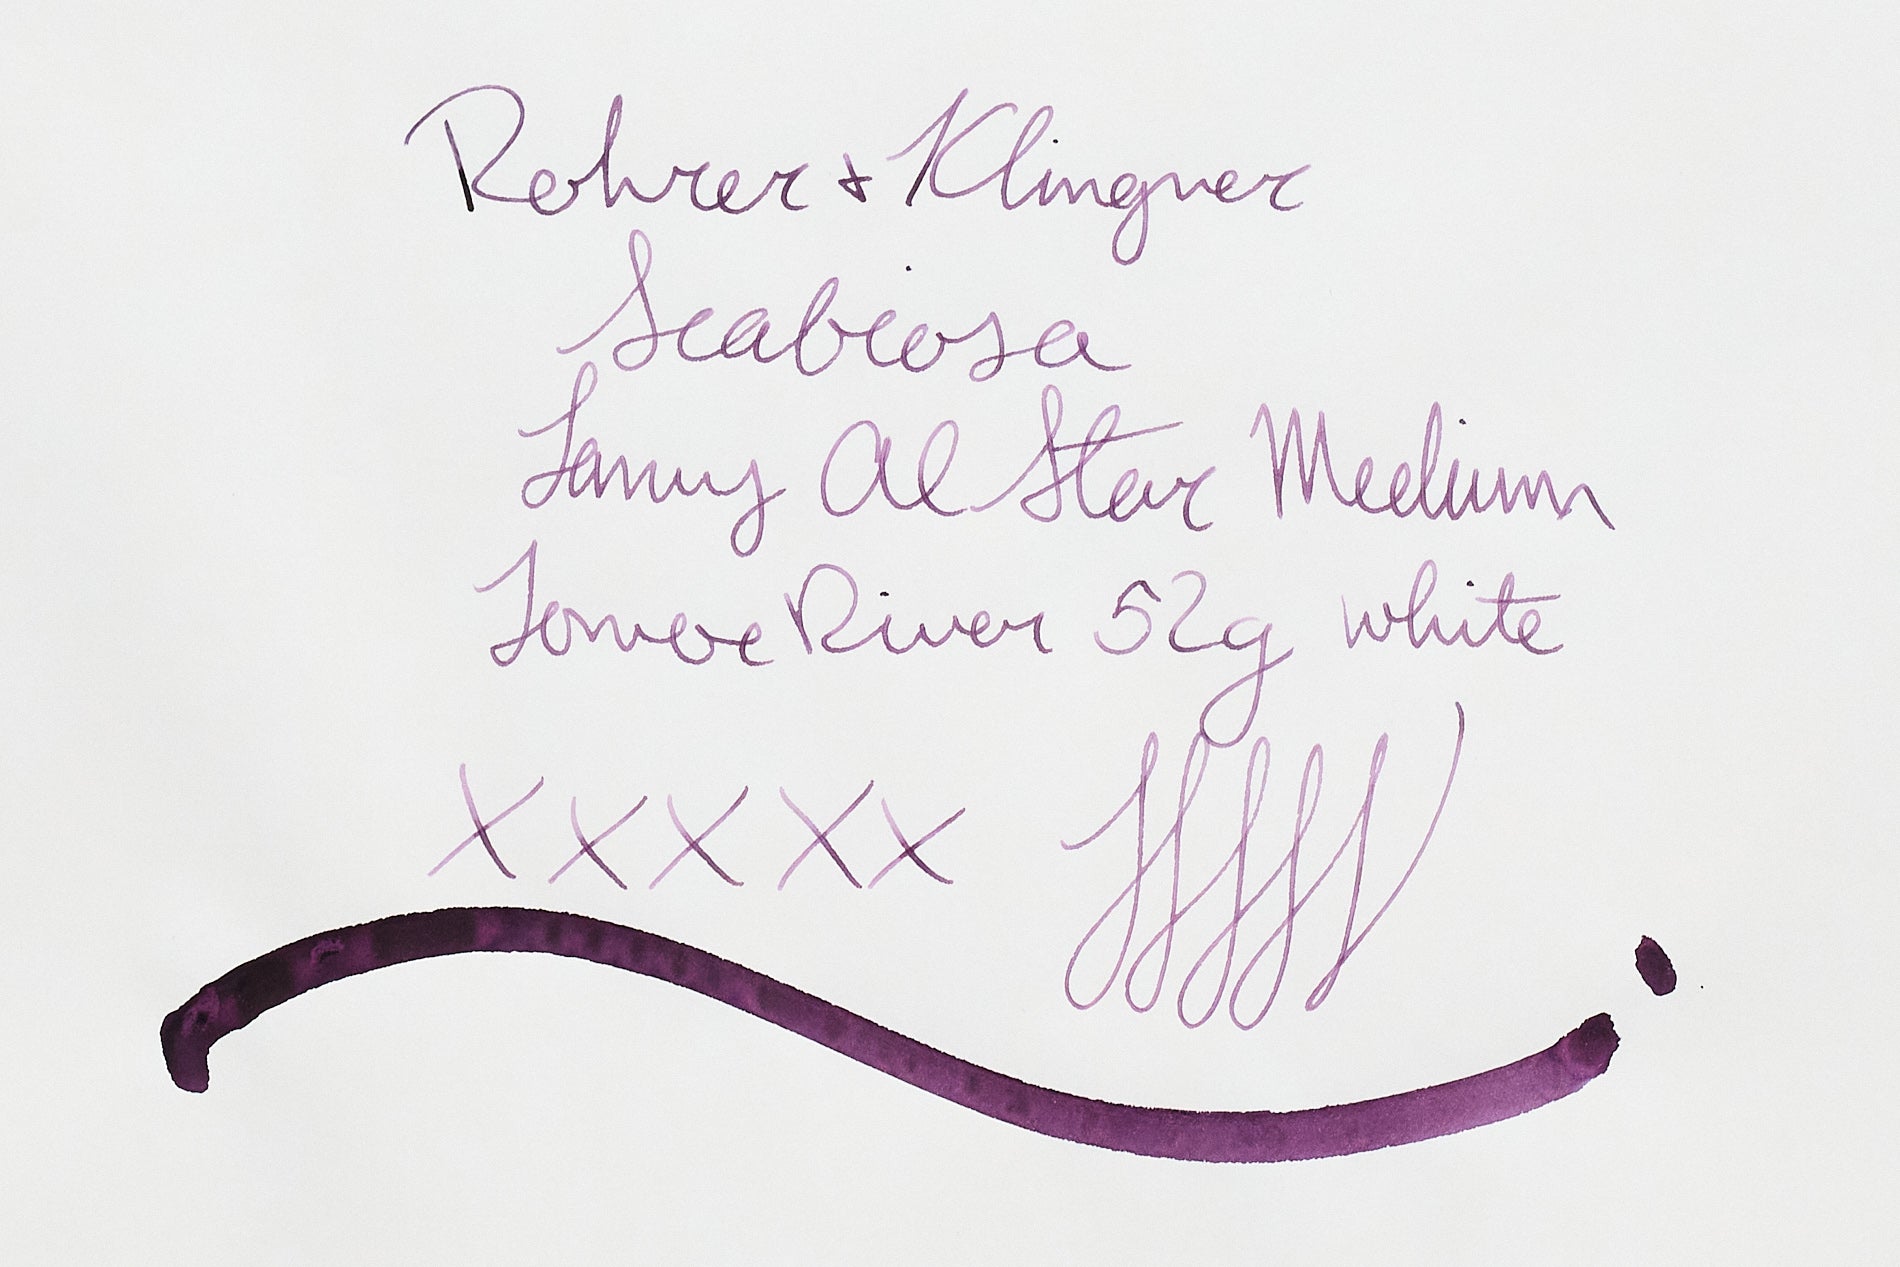 Rohrer + Klingner
Scabiosa
Lamy Al Star Medium
Tomoe River 52g white
X X X X X